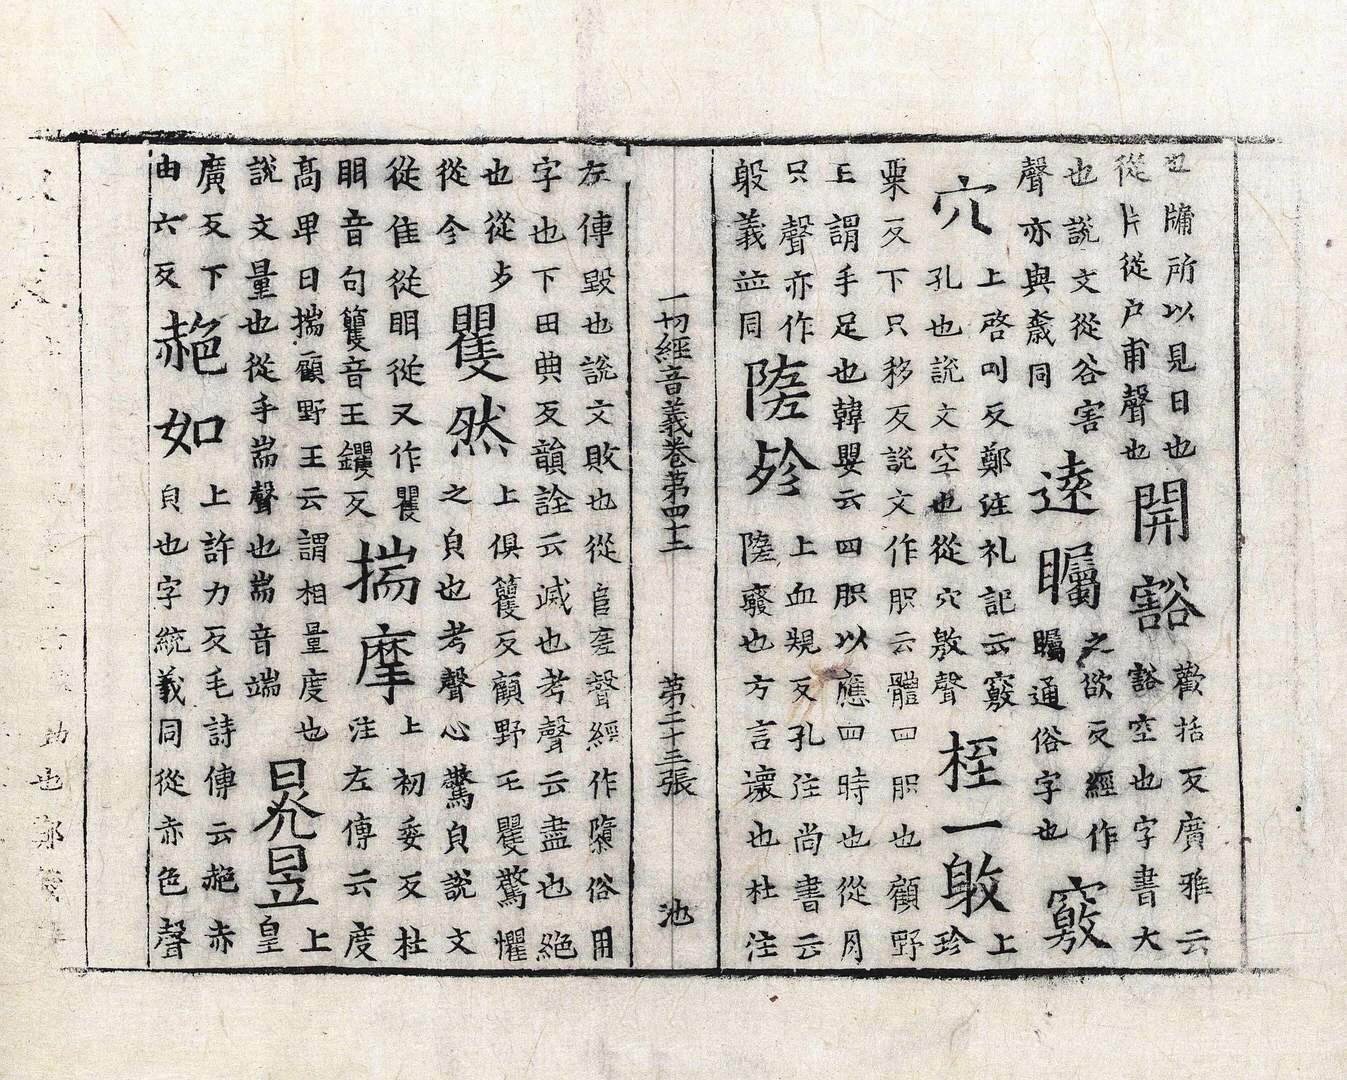 也牗所以見日也
從片從户甫聲也
開豁
歡括反廣雅云
豁空也字書大
也說文從谷害
聲亦與𧯆同
逺矚
之欲反經作
矚通俗字也
竅
穴
上啓叫反鄭注礼記云竅
孔也說文空也從穴敫聲
桎一敢
上
珍
栗反下只移反說文作胑云體四胑也顧野
王謂手足也韓嬰云四胑以應四時也從月
只聲亦作
躯義並同
隓㱶
上血規反孔注尚書云
隓廢也方言壞也杜注
一切經音義卷第四十二 第二十三張 池
左傳毀也說文敗也從𨸏𡐦聲經作隳俗用
字也下田典反韻詮云滅也考聲云盡也絕
也從歺
從㐱
矍然
上俱籰反顧野王矍驚懼
之皃也考聲心驚皃說文
從隹從䀠從又作矍
䀠音句籰音王钁反
揣摩
上初委反杜
注左傳云度
髙卑曰揣顧野王云謂相量度也
說文量也從手耑聲也耑音端
晃昱
上
皇
廣反下
由六反
赩如
上許力反毛詩傳云赩赤
皃也字統義同從赤色聲